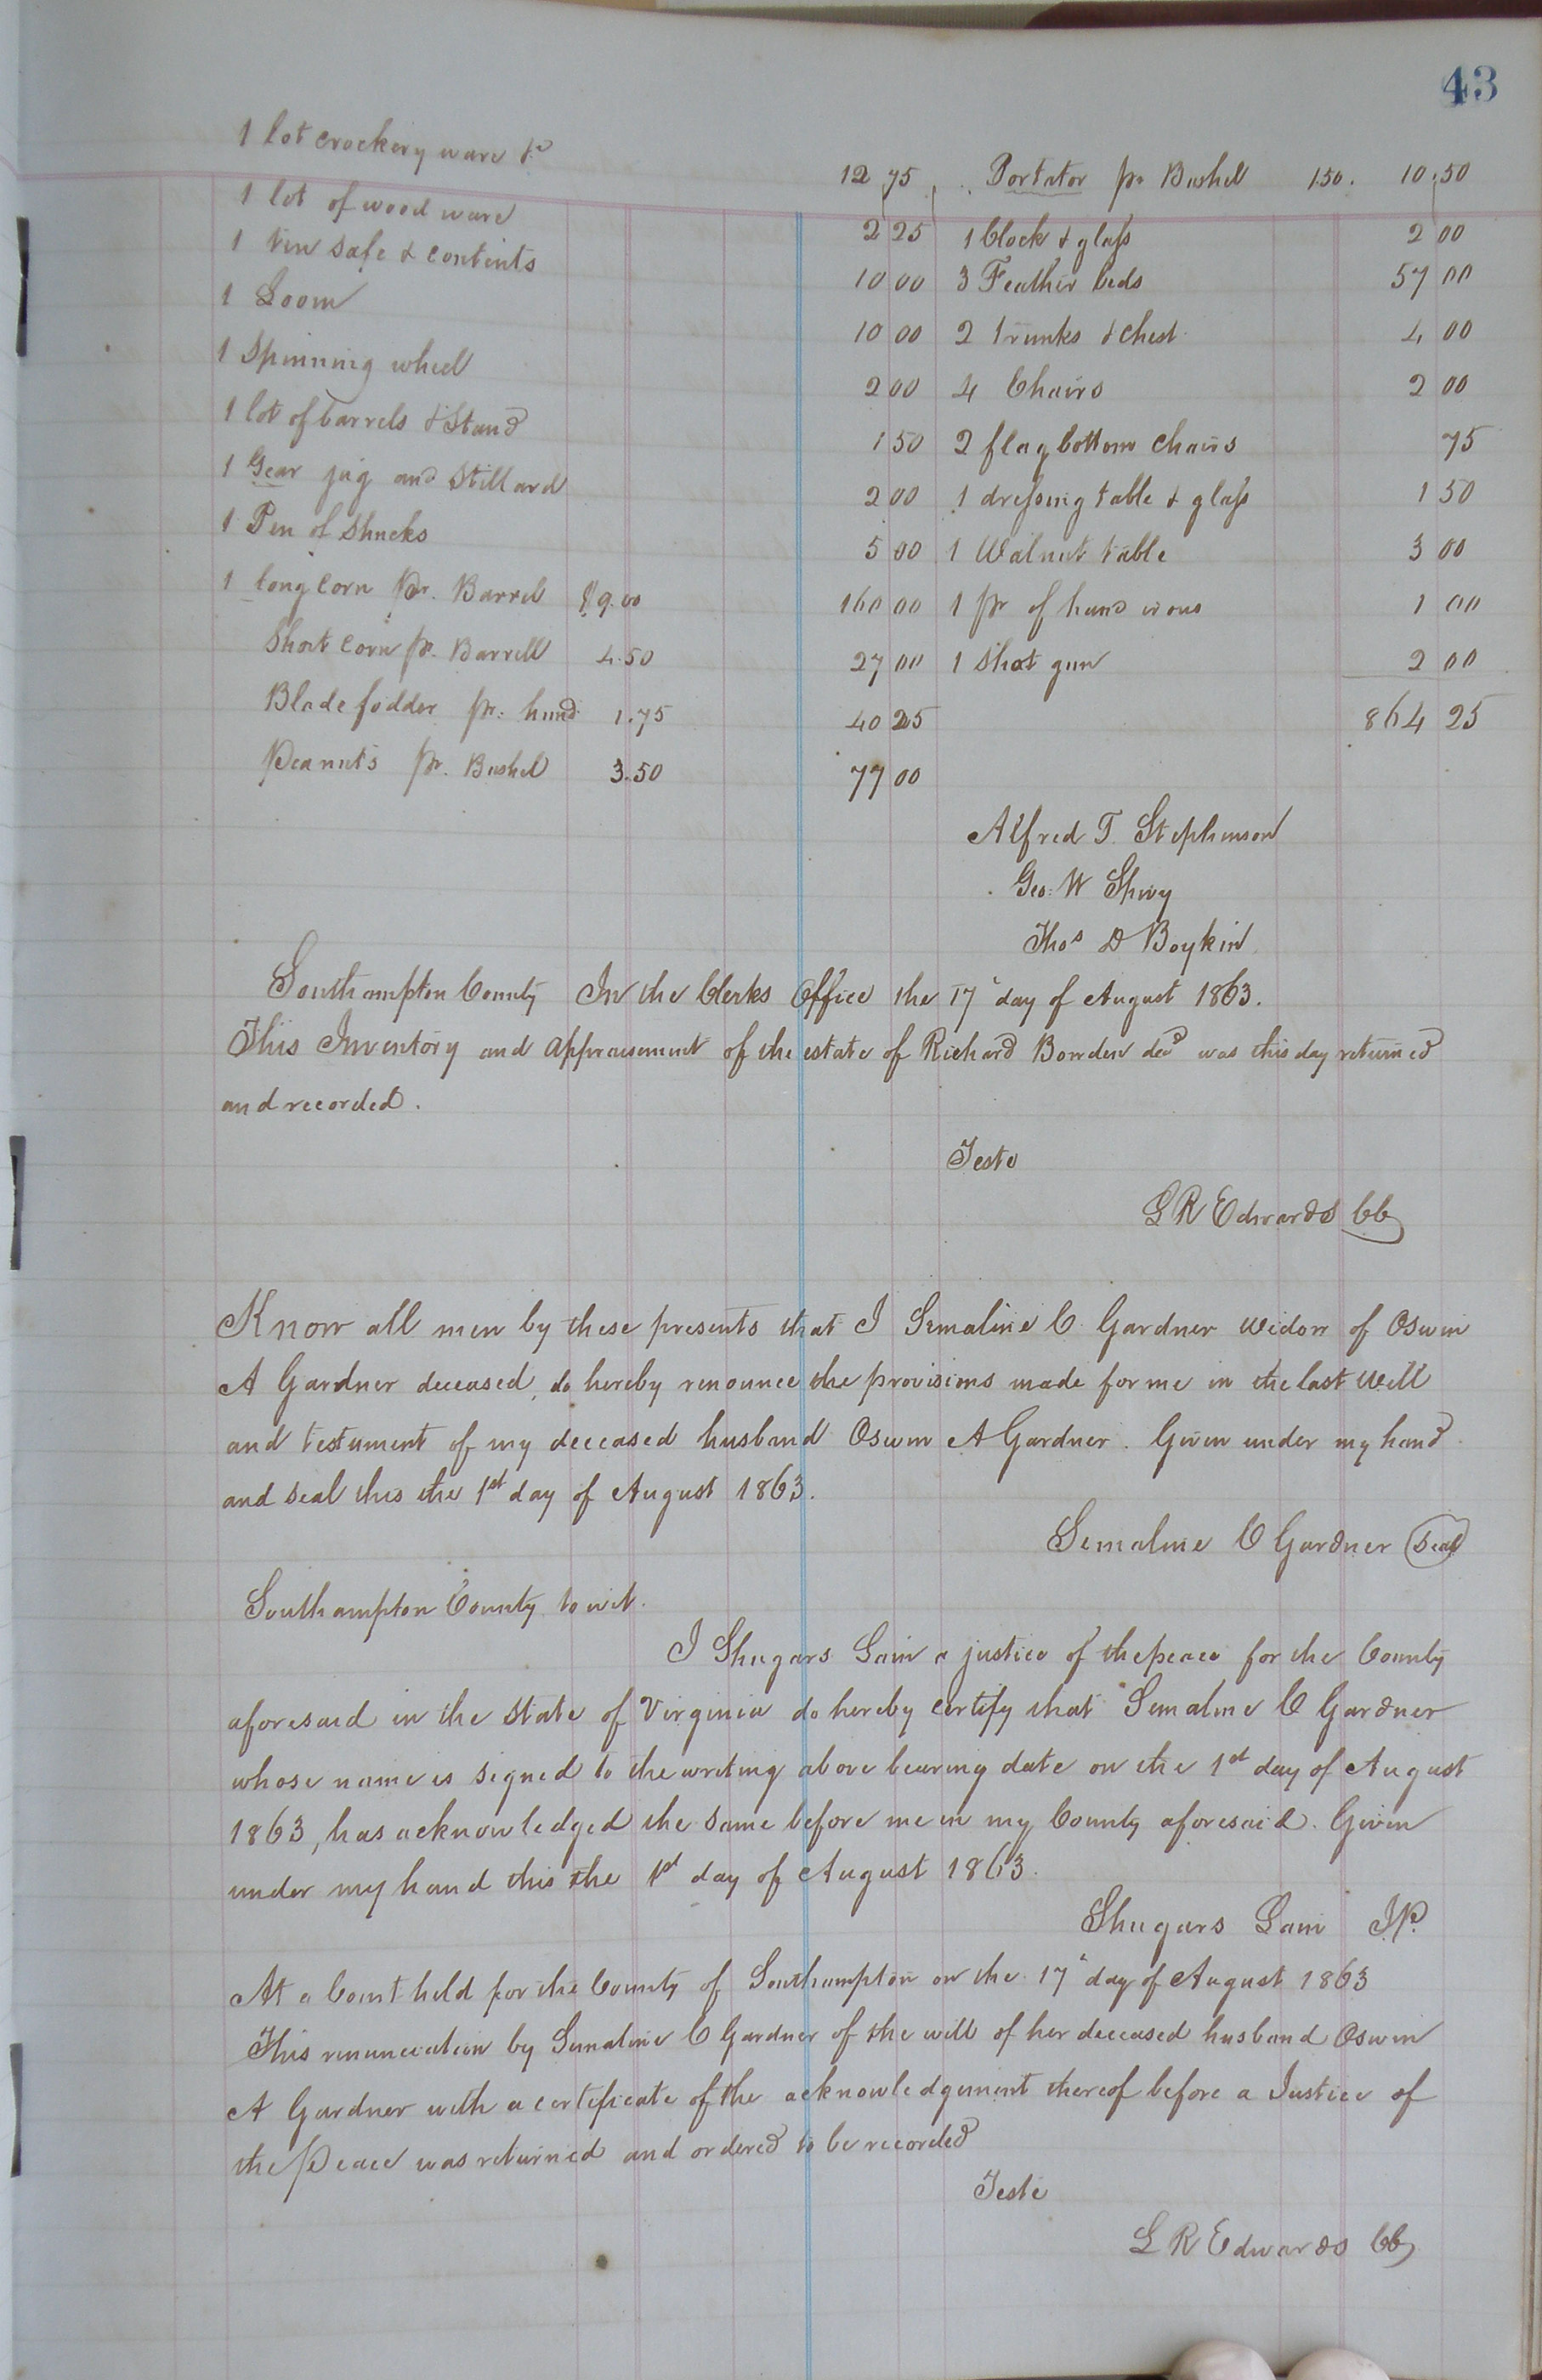 43
1 lot crockery ware &c 12 75
1 lot of wood ware 2 25
1 tin safe & contents 10 00
1 Loom 10 00
1 Spinning wheel 2 00
1 lot of barrels & Stand 1 50
1 Gear jug and Stillard 2 00
1 Pen of Shucks 5 00
1 long corn pr. Barrel $9.00 160 00
Short corn pr. Barrell 4.50 27 00
Blade fodder pr. hund 1.75 40 25
Peanuts pr. Bushel 3.50 77 00
Portator pr Bushel 1.50. 10.50
1 Clock & glass 2 00
3 Feather beds 57 00
2 trunks & chest 4 00
4 Chairs 2 00
2 flag bottom chairs 75
1 dressing table & glass 1 50
1 Walnut table 3 00
1 pr of hand irons 1 00
1 Shot gun 2 00
864 25
Alfred T. Stephenson
Geo. W Spivy
Thos D Boykin
Southampton County In the Clerks Office the 17" day of August 1863.
This Inventory and appraisement of the estate of Richard Bowden decd was this day returned
and recorded.
Teste
L R Edwards CC
Know all men by these presents that I Semaline C Gardner widow of Oswin
A Gardner deceased, do hereby renounce the provisions made for me in the last will
and testument of my deceased husband Oswin A Gardner. Given under my hand
and seal this the 1st day of August 1863.
Semaline C Gardner Seal
Southampton County to wit.
I Shugars Lain a justice of the peace for the County
aforesaid in the State of Virginia do hereby certify that Semaline C Gardner
whose name is signed to the writing above bearing date on the 1st day of August
1863, has acknowledged the same before me in my County aforesaid. Given
under my hand this the 1st day of August 1863.
Shugars Lain J.P.
At a Court held for the County of Southampton on the 17" day of August 1863
This renunciation by Semaline C Gardner of the will of her deceased husband Oswin
A Gardner with a certificate of the acknowledgement thereof before a Justice of
the Peace was returned and ordered to be recorded
Teste
L R Edwards CC